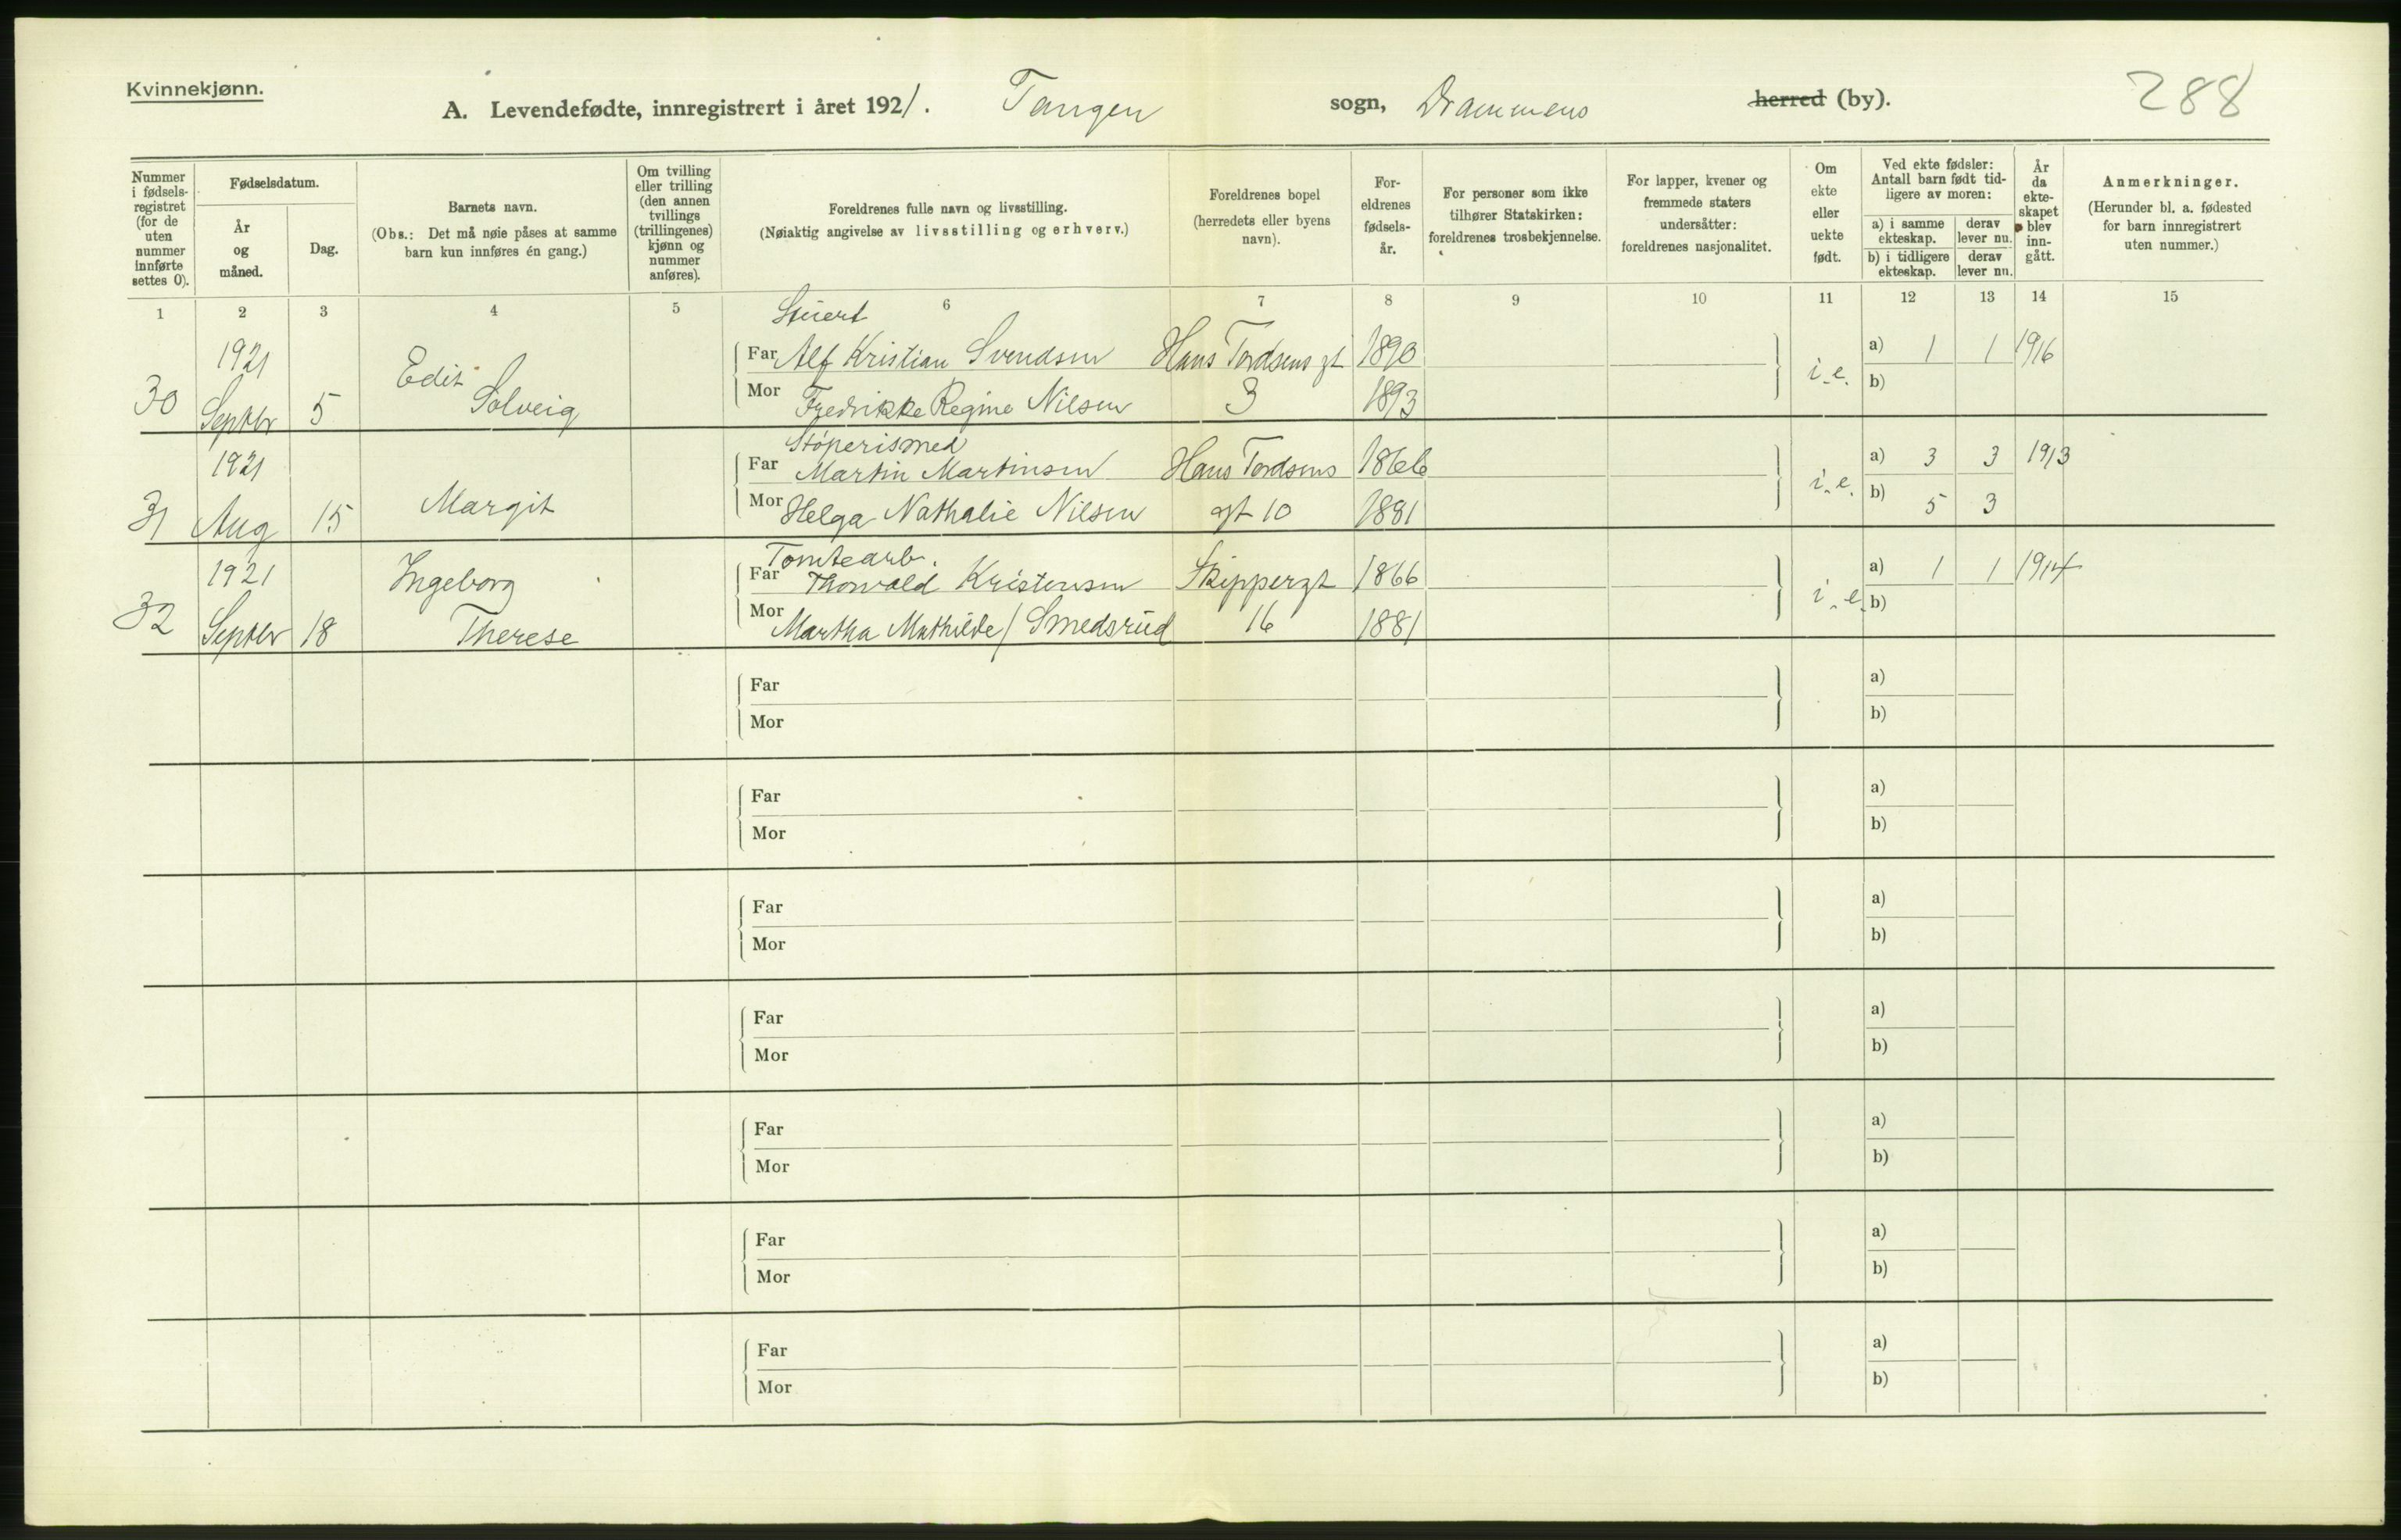 Kvinnekjønn.
A. Levendefødte, innregistrert i året 1921. Tangen sogn, Drammens herred (by).
288
Nummer i fødselsregistret (for de uten nummer innførte settes 0).
Fødselsdatum.
År og måned.
Dag.
Barnets navn.
(Obs.: Det må nøie påses at samme barn kun innføres én gang.)
Om tvilling eller trilling (den annen tvillings (trillingenes) kjønn og nummer anføres).
Foreldrenes fulle navn og livsstilling.
(Nøiaktig angivelse av livsstilling og erhverv.)
Foreldrenes bopel (herredets eller byens navn).
Foreldrenes fødselsår.
For personer som ikke tilhører Statskirken: foreldrenes trosbekjennelse.
For lapper, kvener og fremmede staters undersåtter: foreldrenes nasjonalitet.
Om ekte eller uekte født.
Ved ekte fødsler: Antall barn født tidligere av moren:
a) i samme ekteskap. derav lever nu.
b) i tidligere ekteskap. derav lever nu.
År da ekteskapet blev inngått.
Anmerkninger.
(Herunder bl. a. fødested for barn innregistrert uten nummer.)
1 2 3 4 5 6 7 8 9 10 11 12 13 14 15
Stuert
1921 Far Alf Kristian Svendsen Hans Tordsens gt 1890 a) 1 1 1916
30 Septbr 5 Edit Solveig Mor Fredrikke Regine Nilsen 3 1893 i.e. b)
Støperismed
1921 Far Martin Martinsen Hans Tordsens 1866 a) 3 3 1913
31 Aug 15 Margit Mor Helga Nathalie Nilsen gt 10 1881 i.e. b) 5 3
Tomtearb.
1921 Ingeborg Far Thorvald Kristensen Skippergt 1866 a) 1 1 1914
32 Septbr 18 Therese Mor Martha Mathilde / Smedsrud 16 1881 i.e. b)
Far a)
Mor b)
Far a)
Mor b)
Far a)
Mor b)
Far a)
Mor b)
Far a)
Mor b)
Far a)
Mor b)
Far a)
Mor b)